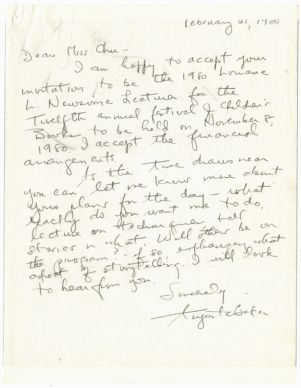 February 21, 1980
Dear Miss Chu-
I am happy to accept your
invitation, to be the 1980 Louane
L. Newsome Lecturer for the
Twelfth annual Festival of Children's
Books to be held on November 8,
1980. I accept the financial
arrangements.
As the time draws near
you can let me know more about
your plans for the day - what
exactly do you want me to do,
lecture on techniques, tell
stories or what. Will others be on
the program? If so, emphasizing what
aspect of storytelling. I will look
to hear from you.
Sincerely,
Augusta Baker